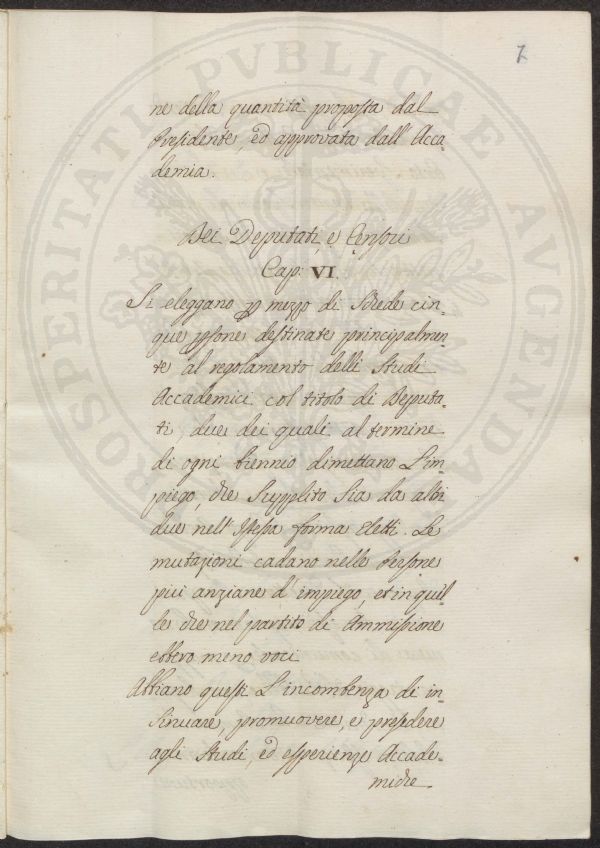 7
ne della quantità proposta dal
Presidente, ed approvata dall' Acca
demia.
Dei Deputati, e Censori
Cap: VI.
Si eleggano p mezzo di Schede cin-
que psone destinate principalmen-
te al regolamento delli Studi
Accademici col titolo di Deputa-
ti, due dei quali al termine
di ogni biennio dimettano l'im-
piego, che supplito sia da altri
due nell' istessa forma eletti. Le
mutazioni cadano nelle Persone
più anziane d' impiego, et in quel
le che nel partito di Ammissione
ebbero meno voci
Abbiano questi l'incombenza di in-
sinuare, promuovere, e presedere
agli studi, ed esperienze Accade-
miche.
PROSPERITATI PVBLICAE AVGENDAE